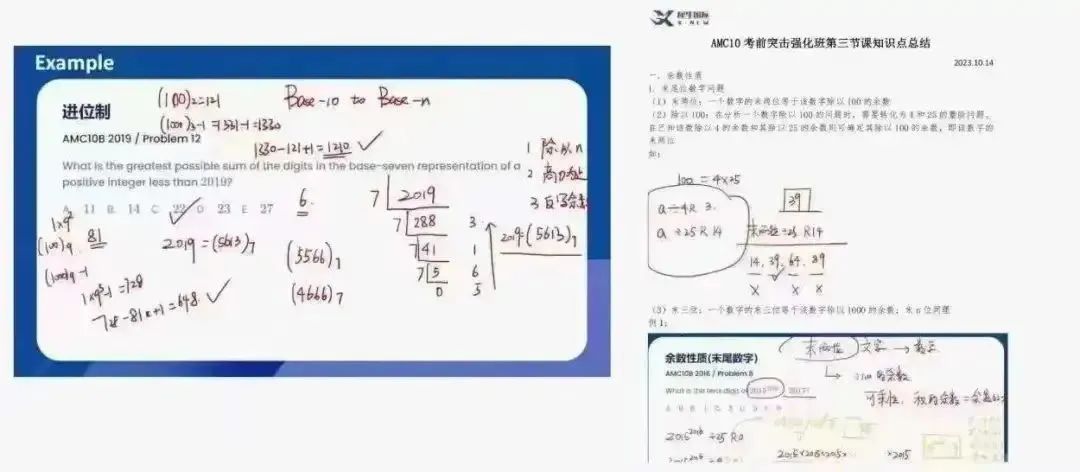 Example
进位制
(100)₂=121
Base-10 to Base-n
(1001)₃-1=1331-1=1330
AMC10B 2019 / Problem 12
1330-121+1=1210
What is the greatest possible sum of the digits in the base-seven representation of a
positive integer less than 2019?
A 11 B 14 C 22 D 23 E 27
6
1 除以n
3 反写余数
7 2019
7 288 3
7 41 1
7 5 6
0 5
2019=(5613)₇
(5566)₇
(4666)₇
2019=(5613)₇
1×9²
(100)₉ 81
(1000)₉-1
1×9³-1=728
728-81+1=648
X-NEW
AMC10 考前突击强化班第三节课知识点总结
2023.10.14
一、余数性质
1. 末尾数字问题
(1) 末两位：一个数字的末两位等于该数字除以 100 的余数
(2) 除以 100：在分析一个数字除以 100 的问题时，需要转化为 4 和 25 的整除问题，
在已知该数除以 4 的余数和其除以 25 的余数则可确定其除以 100 的余数，即该数字的
末两位
如：
100 = 4×25
a÷4R 3.
a÷25 R 14
39
末两位÷25 R14
14, 39, 64, 89
X ✓ X X
(3) 末三位：一个数字的末三位等于该数字除以 1000 的余数；末 n 位同理
例 1：
余数性质(末尾数字)
末两位 文字 → 数字
AMC10B 2016 / Problem 8
What is the tens digit of 2015²⁰¹⁶ - 2017?
可乘性，积的余数=余数的
2015²⁰¹⁶÷25 R0
2015×2015×2015× ×2015